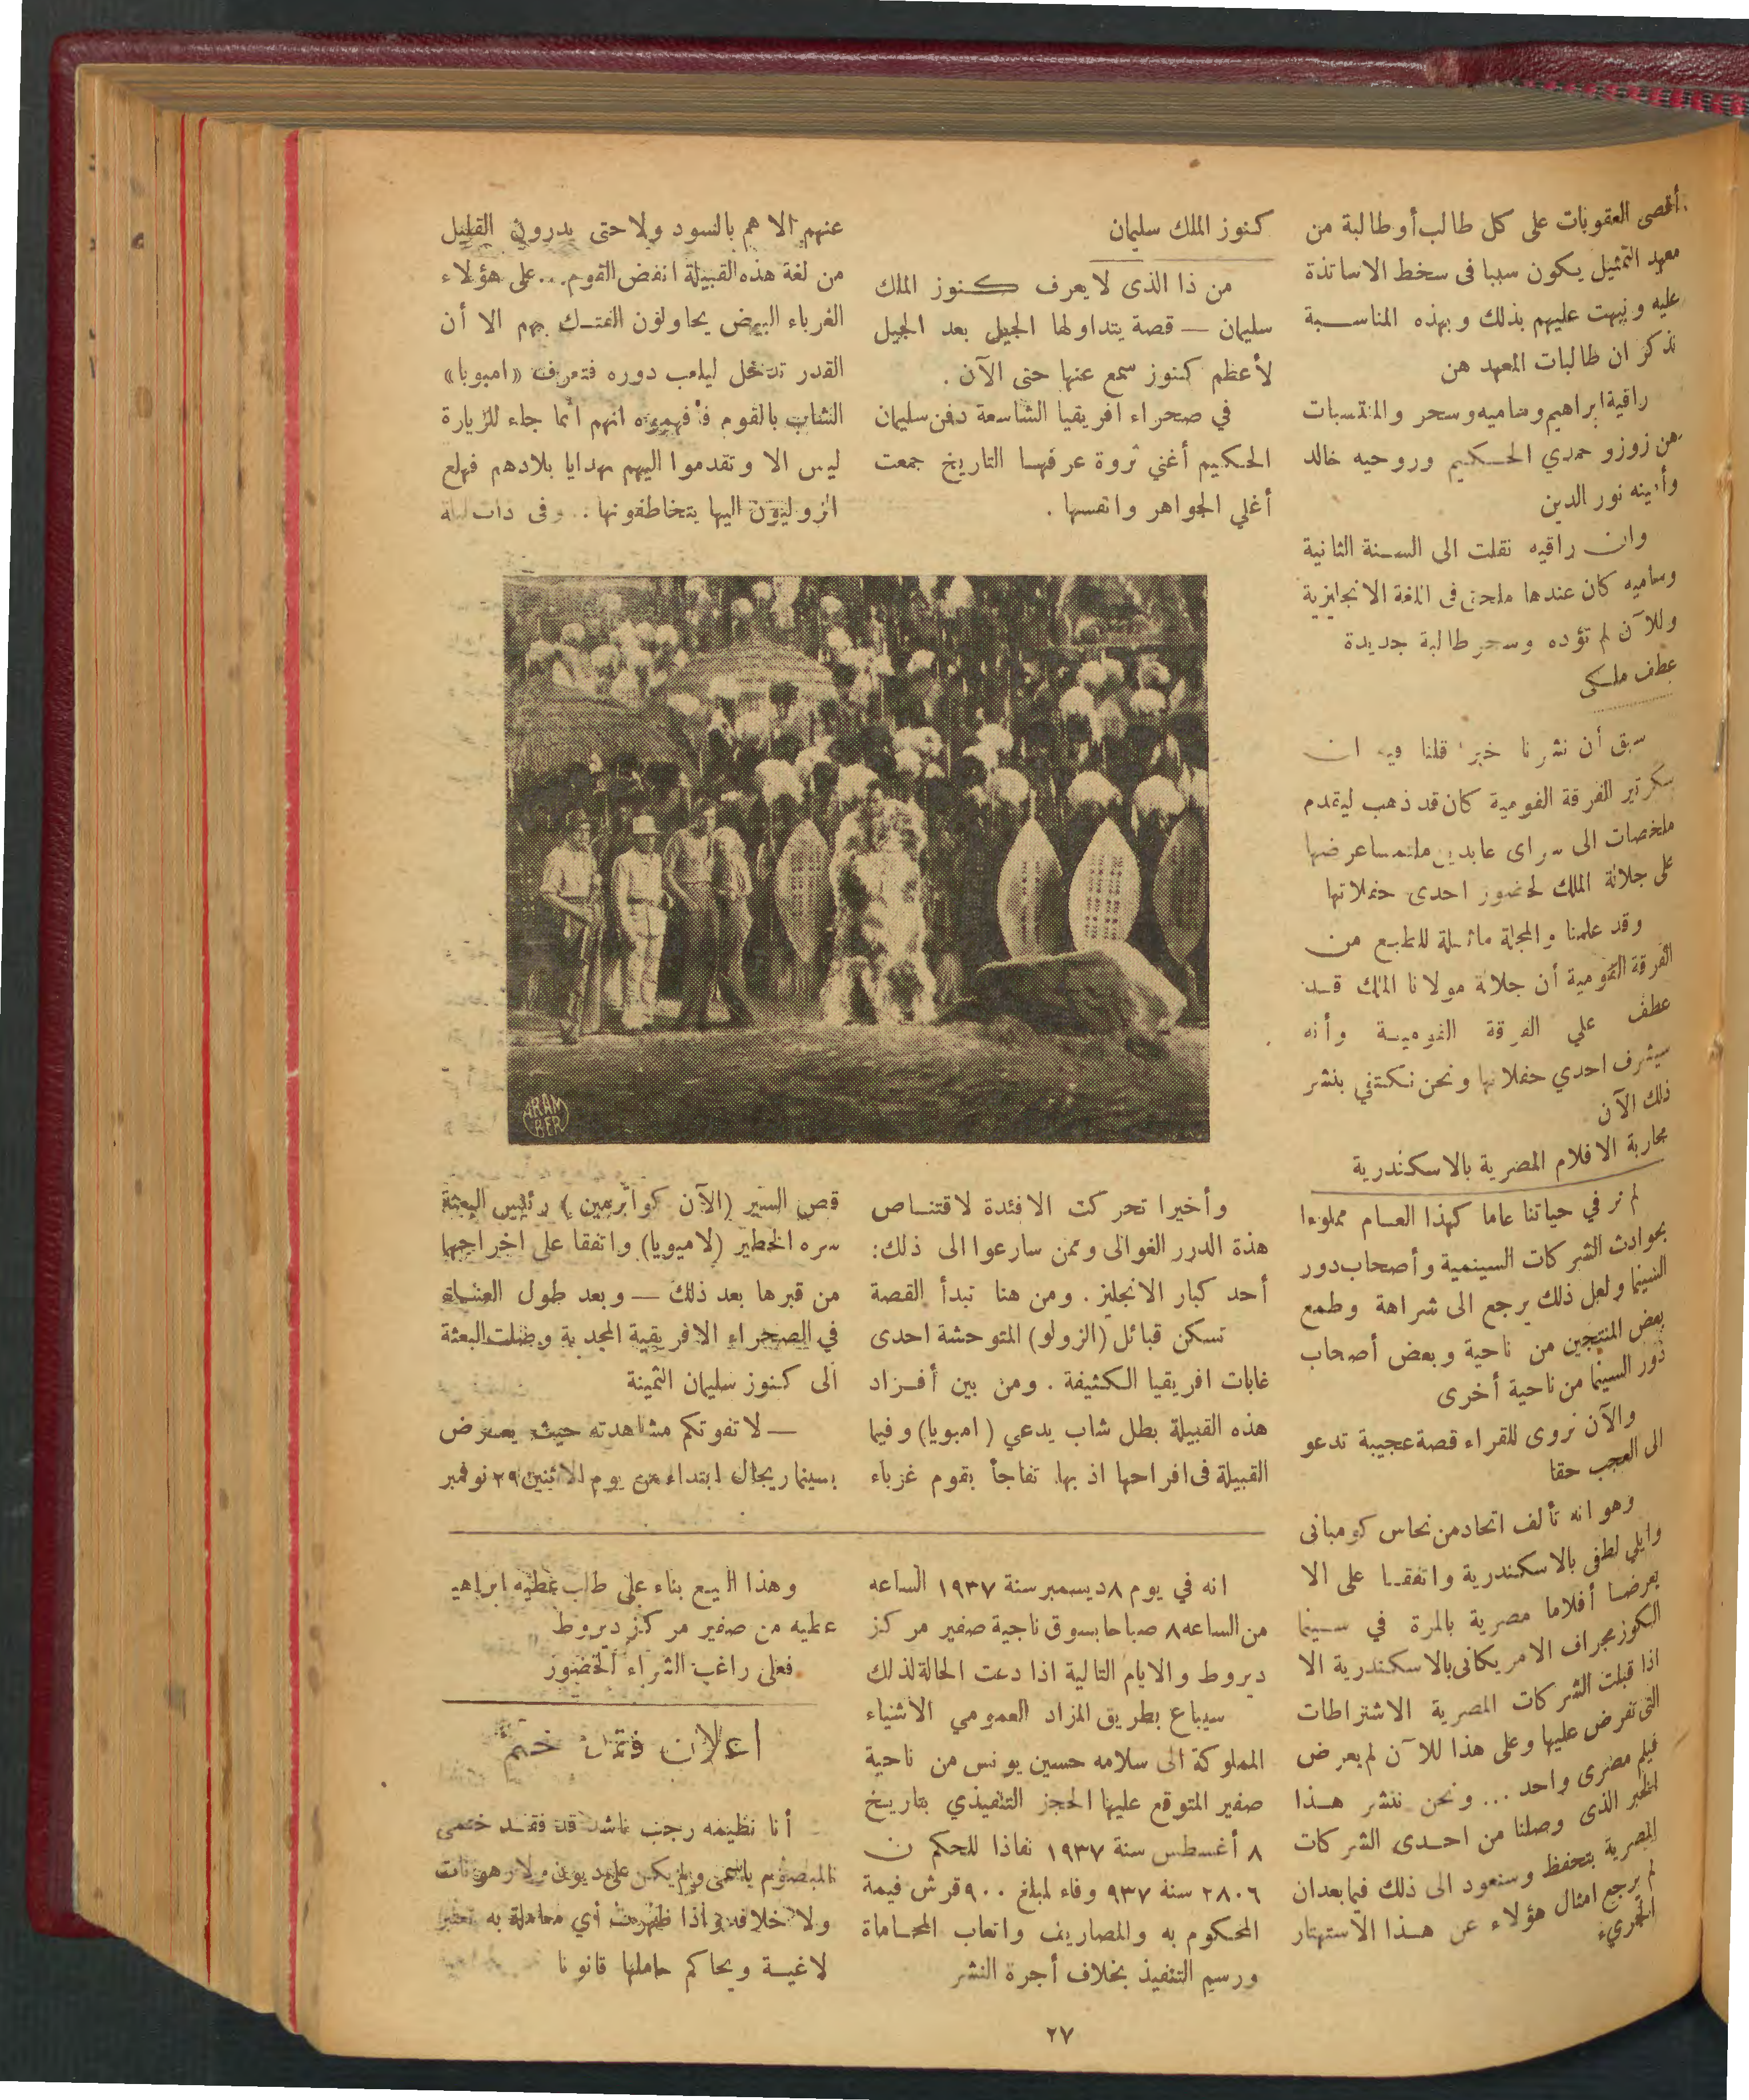 أقصى العقوبات على كل طالب أو طالبة من
معهد التمثيل يكون سببا فى سخط الاساتذة
عليه ونبهت عليهم بذلك وبهذه المناسبة
نذكر ان طالبات المعهد هن
راقية ابراهيم وساميه وسحر والمنتسبات
هن زوزو حمدي الحكيم وروحيه خالد
وأمينه نور الدين
وان راقيه نقلت الى السنة الثانية
وساميه كان عندها ملحق فى اللغة الانجليزية
وللآن لم تؤده وسحر طالبة جديدة
عطف ملكى
سبق أن نشرنا خبرا قلنا فيه ان
سكرتير الفرقة القومية كان قد ذهب ليقدم
ملخصات الى سراى عابدين ملتمسا عرضها
على جلالة الملك لحضور احدى حفلاتها
وقد علمنا والمجلة ماثلة للطبع من
الفرقة القومية أن جلالة مولانا الملك قد
عطف علي الفرقة القومية وأنه
سيشرف احدي حفلاتها ونحن نكتفي بنشر
ذلك الآن
محاربة الافلام المصرية بالاسكندرية
لم نر في حياتنا عاما كهذا العام مملوءا
بحوادث الشركات السينمية وأصحاب دور
السينما ولعل ذلك يرجع الى شراهة وطمع
بعض المنتجين من ناحية وبعض أصحاب
دور السينما من ناحية أخرى
والآن نروى للقراء قصة عجيبة تدعو
الى العجب حقا
وهو انه تألف اتحاد من نحاس كومبانى
وايلي لطفى بالاسكندرية واتفقا على الا
يعرضا أفلاما مصرية بالمرة في سينما
الكوزمجراف الامريكانى بالاسكندرية الا
اذا قبلت الشركات المصرية الاشتراطات
التى تفرض عليها وعلى هذا للآن لم يعرض
فيلم مصرى واحد ... ونحن ننشر هذا
الخبر الذى وصلنا من احدى الشركات
المصرية بتحفظ وسنعود الى ذلك فيما بعد ان
لم يرجع امثال هؤلاء عن هذا الاستهتار
الجريء
كنوز الملك سليمان
من ذا الذى لا يعرف كنوز الملك
سليمان — قصة يتداولها الجيل بعد الجيل
لأعظم كنوز سمع عنها حتى الآن .
في صحراء افريقيا الشاسعة دفن سليمان
الحكيم أغني ثروة عرفها التاريخ جمعت
أغلي الجواهر وانفسها .
وأخيرا تحركت الافئدة لاقتناص
هذة الدرر الغوالى وممن سارعوا الى ذلك :
أحد كبار الانجليز . ومن هنا تبدأ القصة
تسكن قبائل (الزولو) المتوحشة احدى
غابات افريقيا الكثيفة . ومن بين أفراد
هذه القبيلة بطل شاب يدعي ( امبويا) وفيما
القبيلة فى افراحها اذ بها تفاجأ بقوم غرباء
عنهم الا هم بالسود ولا حتى يدرون القليل
من لغة هذه القبيلة انفض القوم ... على هؤلاء
الغرباء البيض يحاولون الفتك بهم الا أن
القدر تدخل ليلعب دوره فتعرف «امبوبا»
الشاب بالقوم فأفهموه انهم انما جاء للزيارة
ليس الا وتقدموا اليهم بهدايا بلادهم فهلع
الزوليون اليها يتخاطفونها .. وفى ذات ليلة
ARAM
BER
قص السير (الآن كواترمين ) رئيس البعثة
سره الخطير (لامبويا) واتفقا على اخراجها
من قبرها بعد ذلك — وبعد طول العناء
في الصحراء الافريقية المجدبة وصلت البعثة
الى كنوز سليمان الثمينة
— لا تفوتكم مشاهدته حيث يعرض
بسينما ريجال ابتداء من يوم الاثنين ٢٩ نوفمبر
انه في يوم ٨ ديسمبر سنة ١٩٣٧ الساعه
من الساعه ٨ صباحا بسوق ناحية صفير مركز
ديروط والايام التالية اذا دعت الحالة لذلك
سيباع بطريق المزاد العمومي الاشياء
المملوكة الى سلامه حسين يونس من ناحية
صفير المتوقع عليها الحجز التنفيذي بتاريخ
٨ أغسطس سنة ١٩٣٧ نفاذا للحكم ن
٢٨٠٦ سنة ٩٣٧ وفاء لمبلغ ٩٠٠ قرش قيمة
المحكوم به والمصاريف واتعاب المحاماة
ورسيم التنفيذ بخلاف أجرة النشر
وهذا البيع بناء على طلب عطيه ابراهيم
عطيه من صفير مركز ديروط
فعلى راغب الشراء الحضور
اعلان فقدان ختم
أنا نظيمه رجب ناشد قد فقد ختمى
المبصوم باسمى ولم يكن علىه ديون ولا رهونات
ولا خلافه فاذا ظهرت أي معاملة به تعتبر
لاغية ويحاكم حاملها قانونا
٢٧